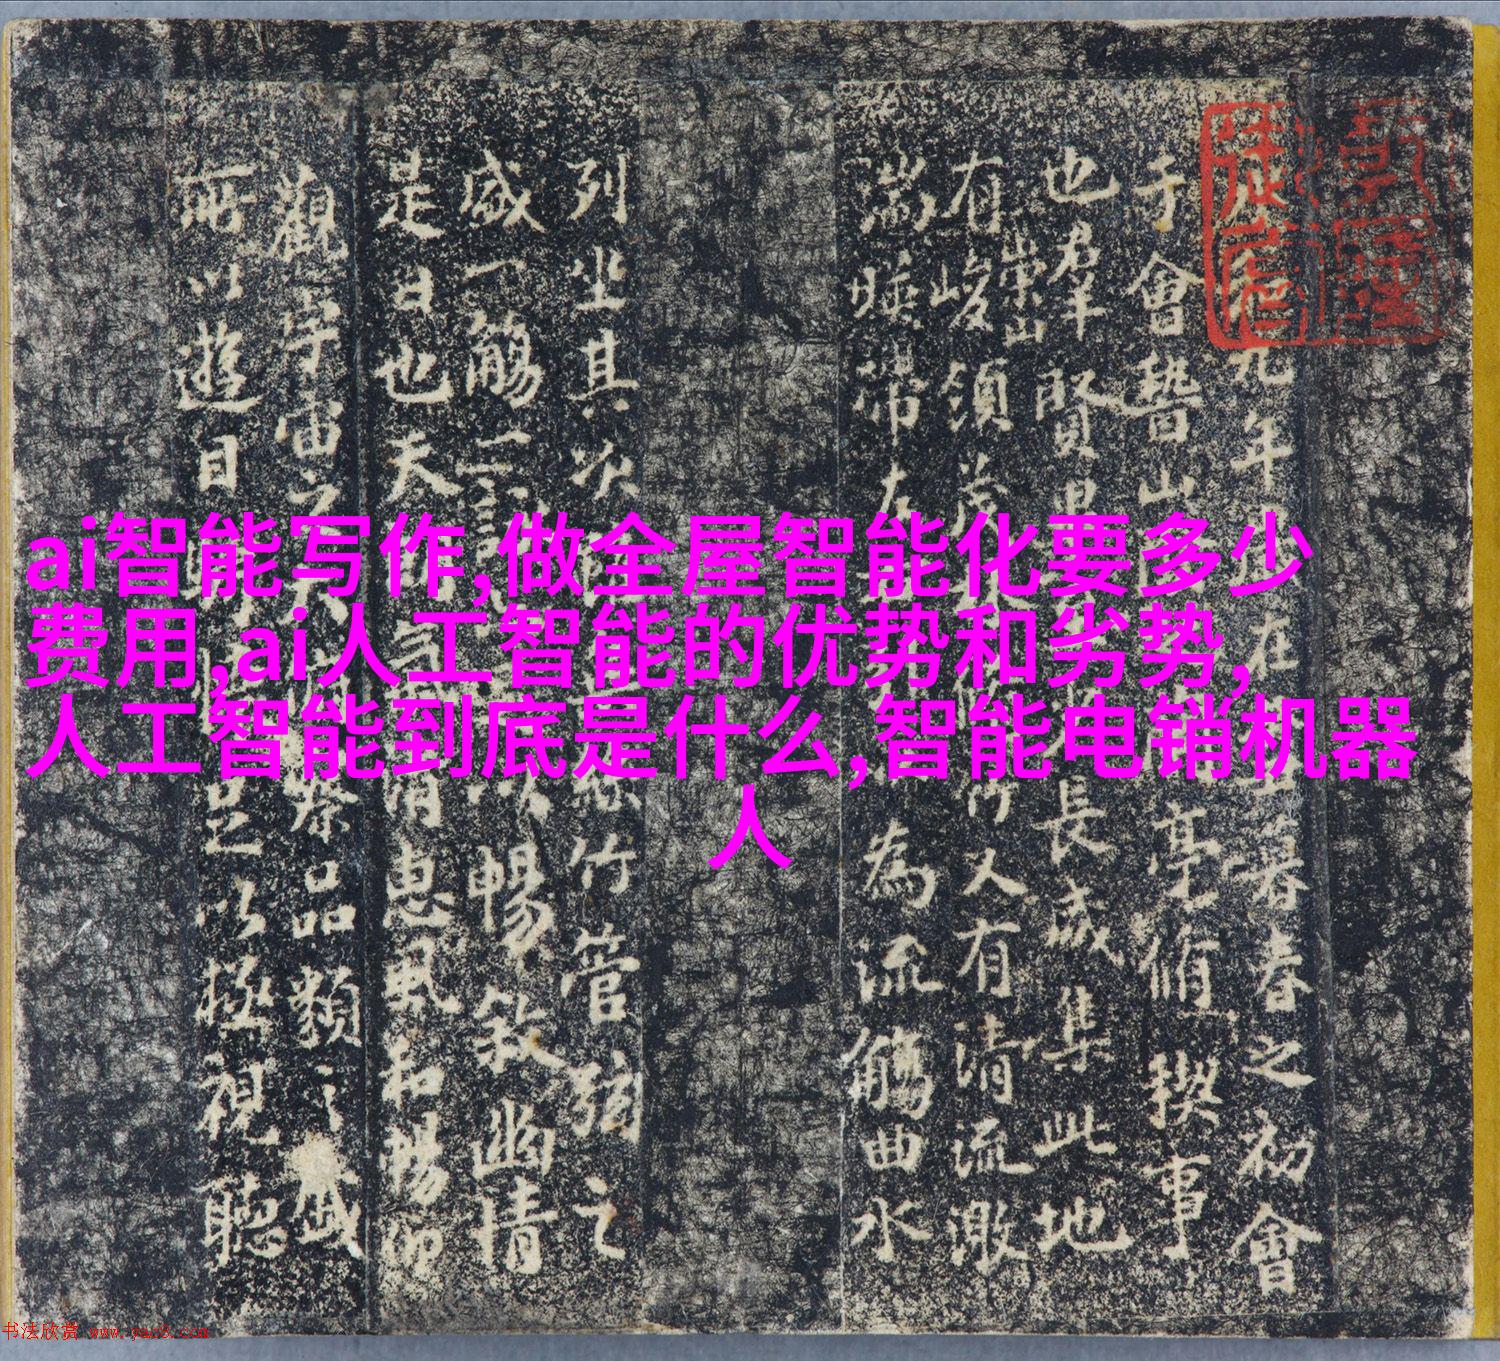 ai智能写作,做全屋智能化要多少
费用,ai人工智能的优势和劣势,
人工智能到底是什么,智能电销机器
人
九年在暮春之初會
于會稽山亭脩禊事
也羣賢畢長咸集此地
有崇山峻領茂竹又有清流激
湍暎帶左為流觴曲水
列坐其次絲竹管弦之
盛一觴一詠以暢敘幽情
是日也天氣清惠風和暢仰
觀宇宙之大察品類之盛
所以遊目足以極視聽
书法欣赏 www.yac8.com